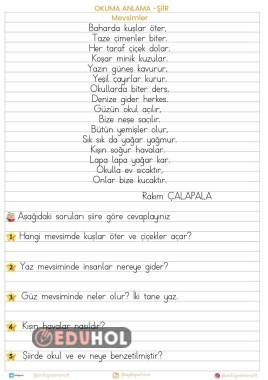 OKUMA ANLAMA -ŞİİR
Mevsimler
Baharda kuşlar öter,
Taze çimenler biter.
Her taraf çiçek dolar.
Koşar minik kuzular.
Yazın güneş kavurur,
Yeşil çayırlar kurur.
Okullarda biter ders,
Denize gider herkes.
Güzün okul açılır,
Bize neşe saçılır.
Bütün yemişler olur,
Sık sık da yağar yağmur.
Kışın soğur havalar.
Lapa lapa yağar kar.
Okulla ev sıcaktır,
Onlar bize kucaktır.
Rakım ÇALAPALA
Aşağıdaki soruları şiire göre cevaplayınız
1 Hangi mevsimde kuşlar öter ve çiçekler açar?
2 Yaz mevsiminde insanlar nereye gider?
3 Güz mevsiminde neler olur? İki tane yaz.
4 Kışın havalar nasıldır?
EDUHOL
5 Şiirde okul ve ev neye benzetilmiştir?